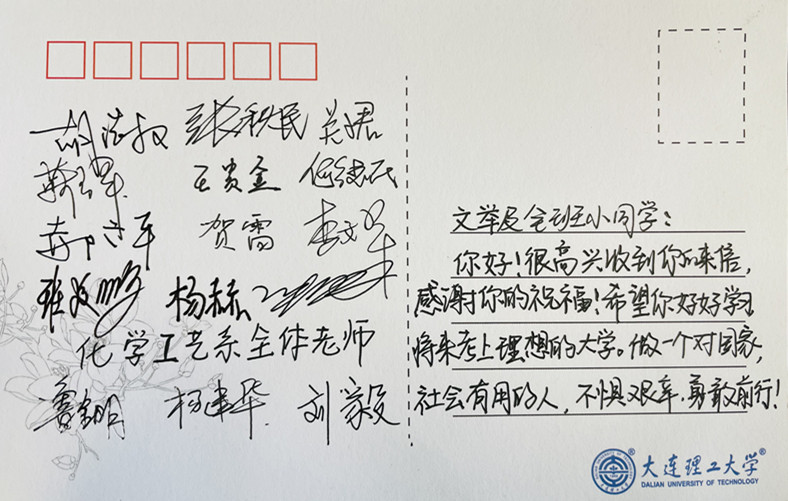 胡浩权 张秩民 吴君
靳立军 王贵金 何德民
郝广平 贺雷
杨赫
化学工艺系全体老师
杨建华 刘家毅
文举及全班小同学:
你好!很高兴收到你的来信,
感谢对你的祝福!希望你好好学习
将来考上理想的大学。做一个对国家,
社会有用的人,不惧艰辛.勇敢前行!
大连理工大学®
DALIAN UNIVERSITY OF TECHNOLOGY